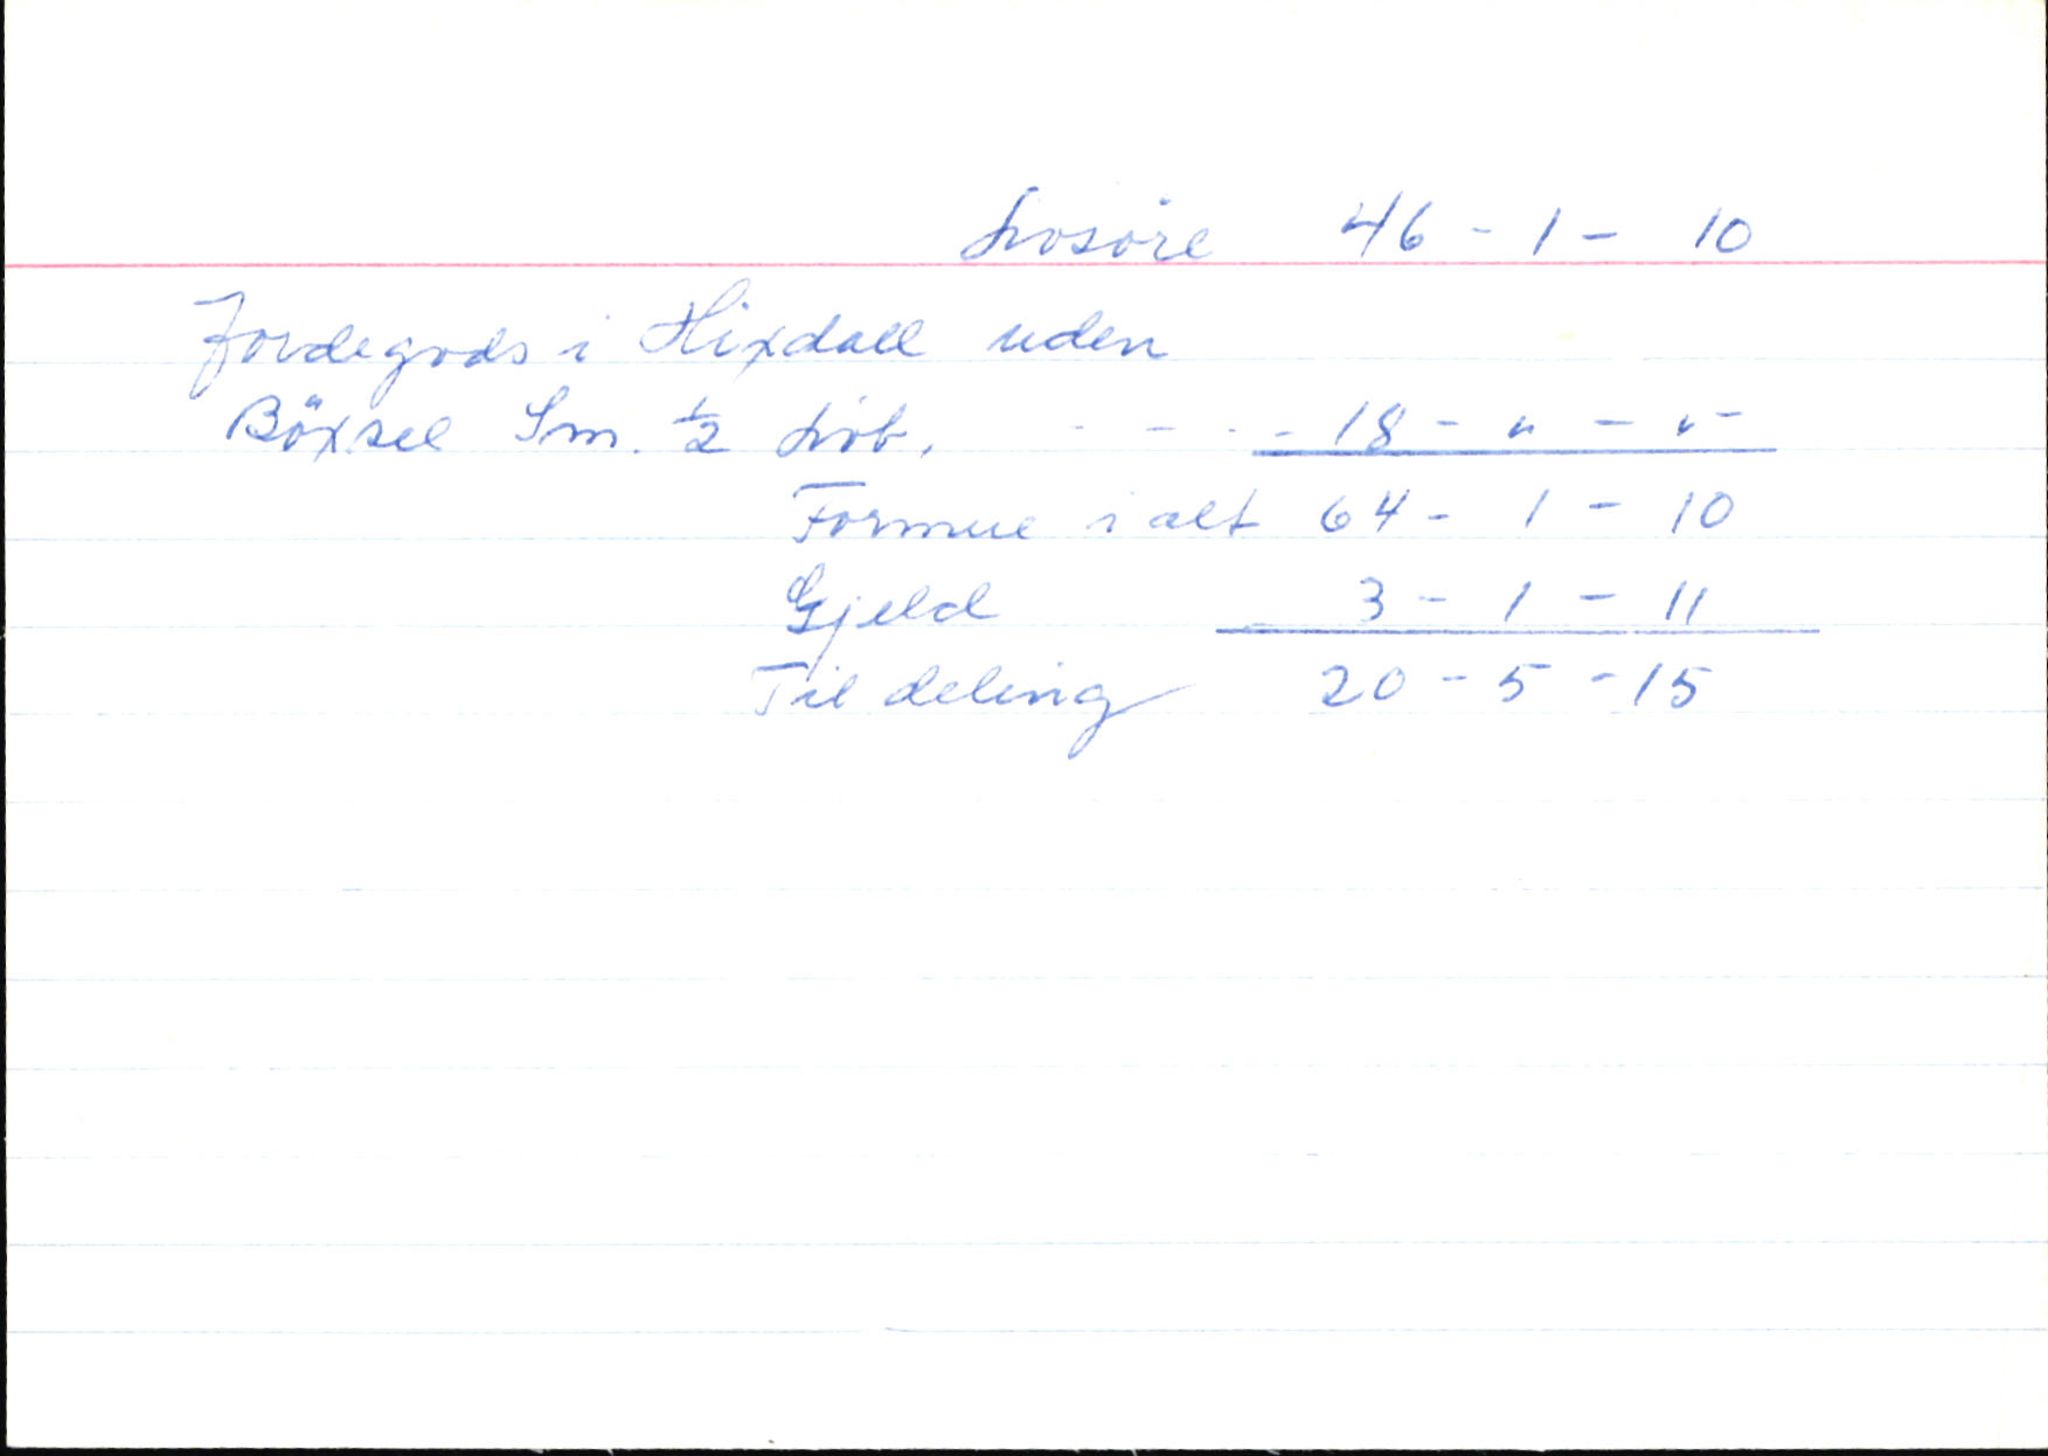 Løsøre 46 - 1 - 10
Jordegods i Hixdall uden
Böxsel Sm. ½ Løb. - - - - 18 - " - " -
Formue i alt 64 - 1 - 10
Gjeld 3 - 1 - 11
Til deling 20 - 5 - 15